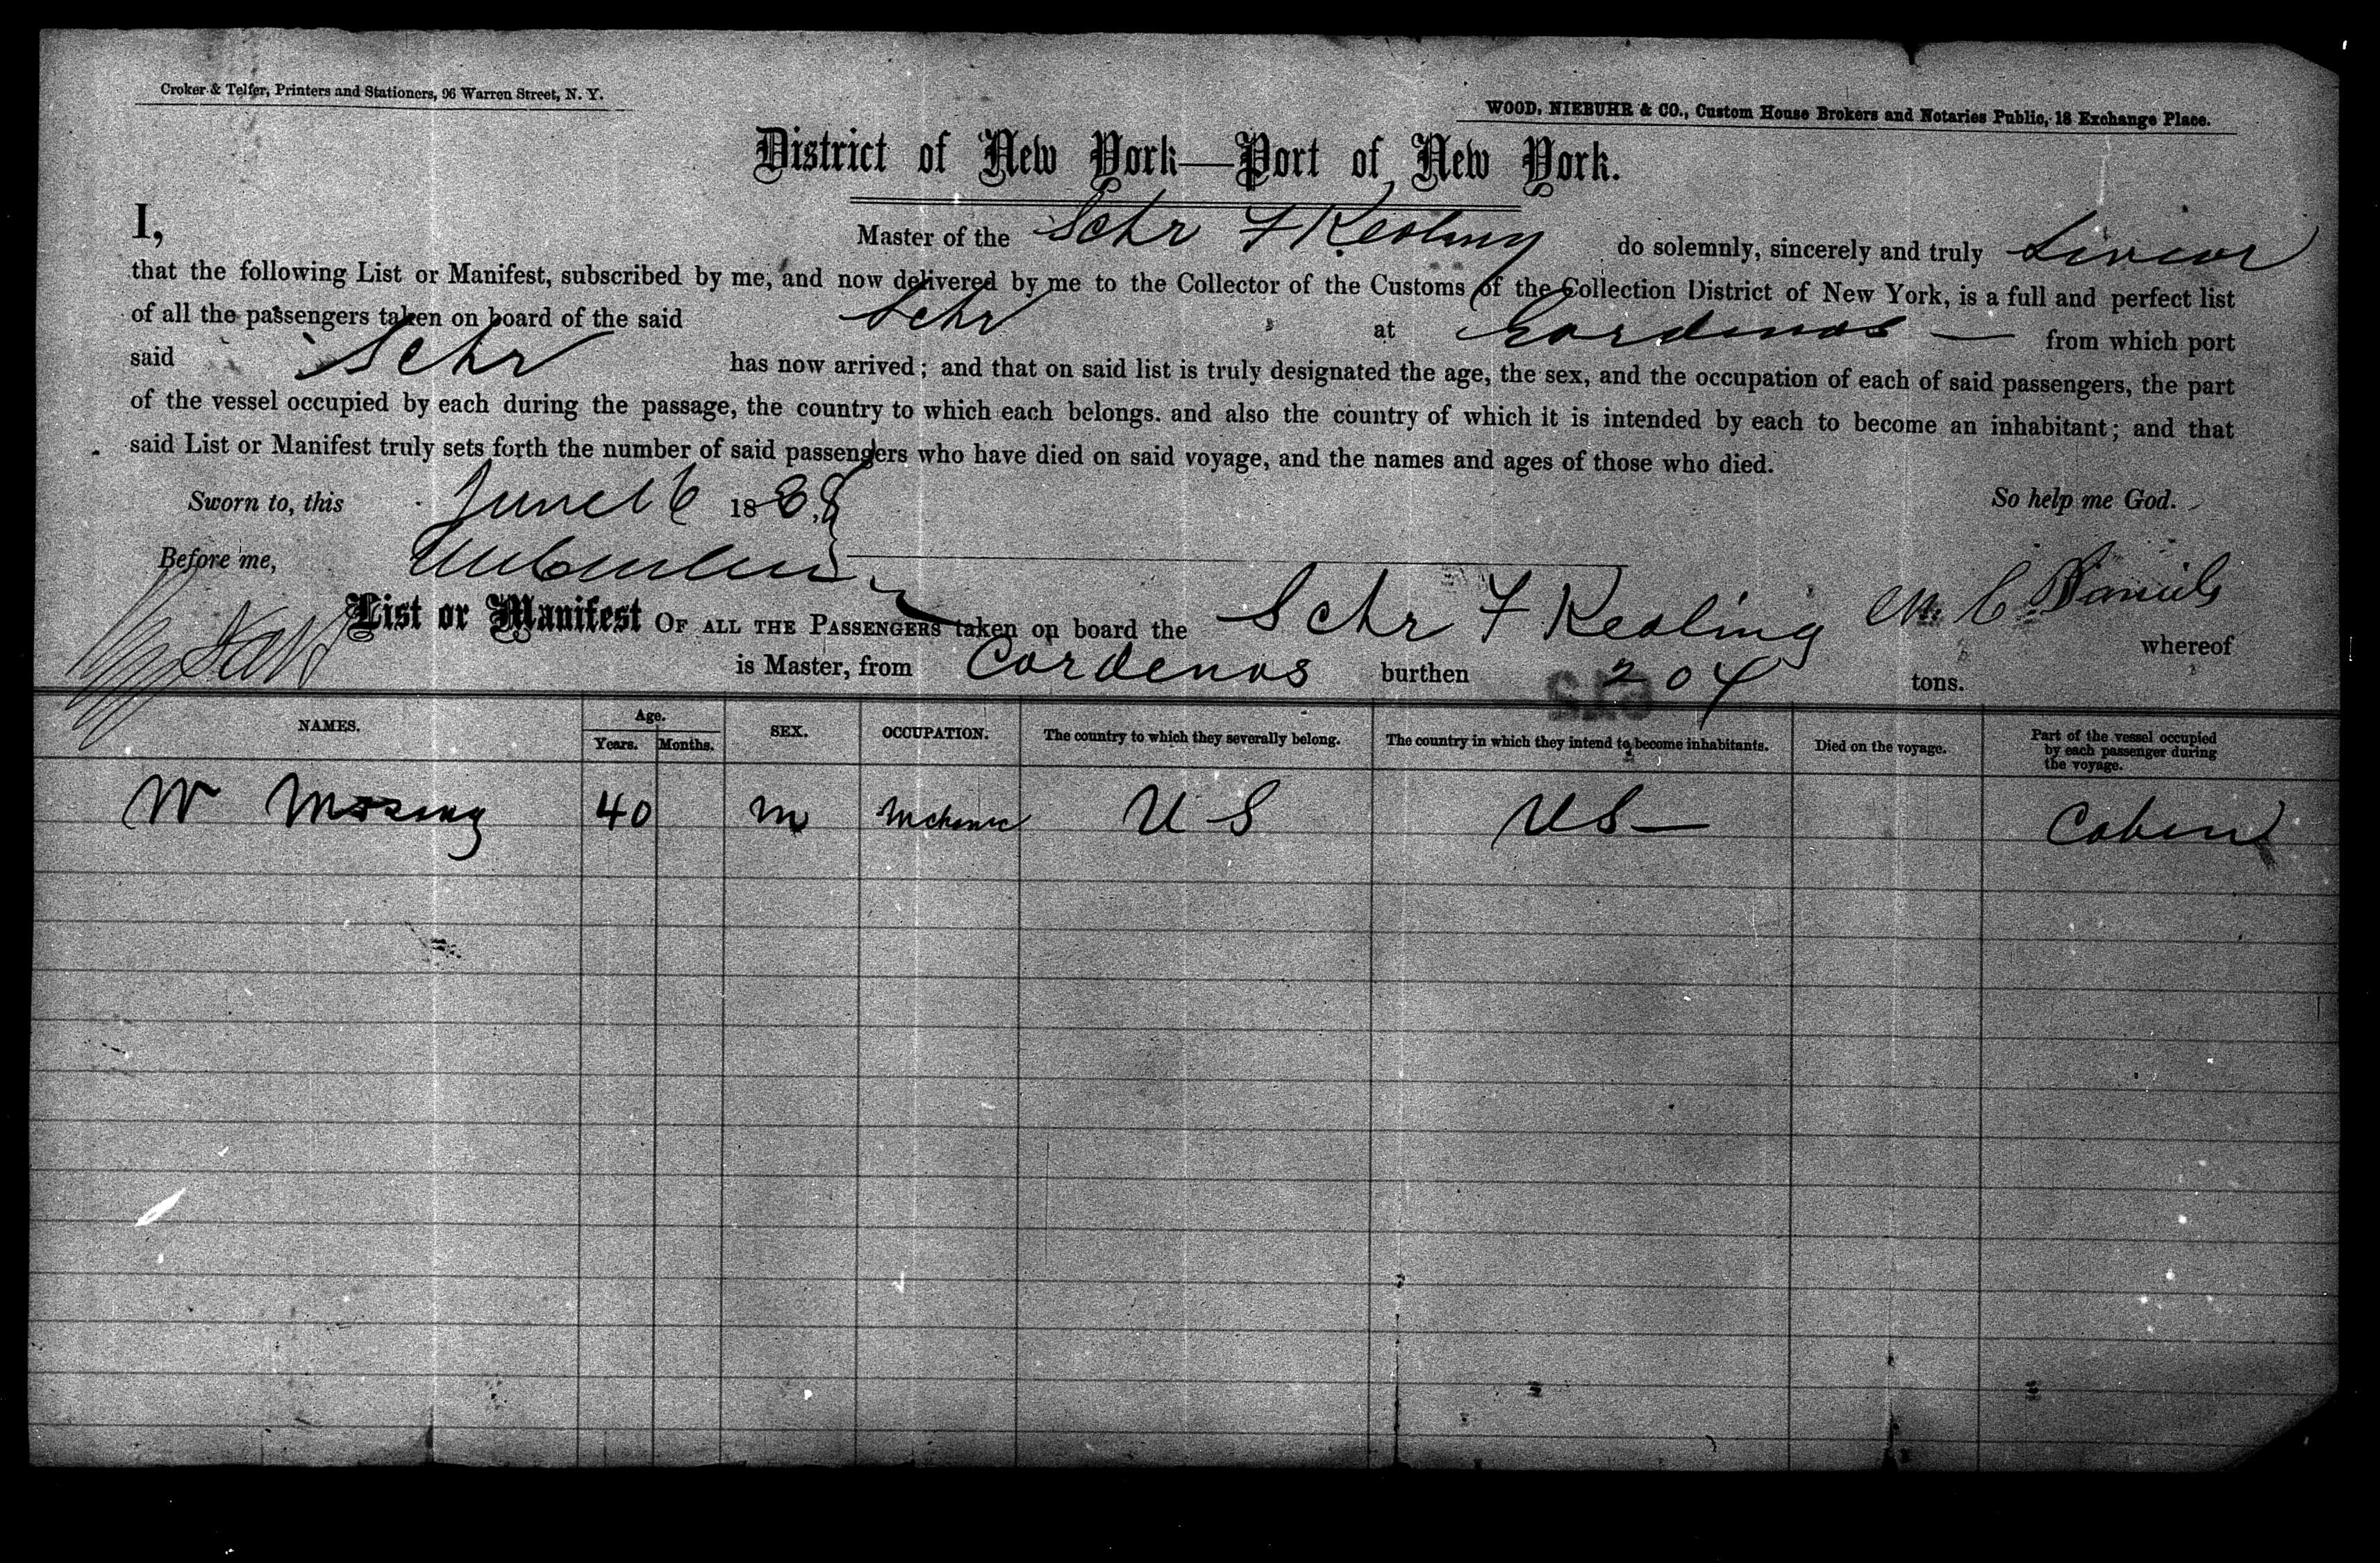 Croker & Telfer, Printers and Stationers, 96 Warren Street, N. Y.
WOOD, NIEBUHR & CO., Custom House Brokers and Notaries Public, 18 Exchange Place.
District of New York—Port of New York.
I, Master of the Schr F Kealing do solemnly, sincerely and truly swear
that the following List or Manifest, subscribed by me, and now delivered by me to the Collector of the Customs of the Collection District of New York, is a full and perfect list
of all the passengers taken on board of the said Schr at Cardenas — from which port
said Schr has now arrived; and that on said list is truly designated the age, the sex, and the occupation of each of said passengers, the part
of the vessel occupied by each during the passage, the country to which each belongs. and also the country of which it is intended by each to become an inhabitant; and that
said List or Manifest truly sets forth the number of said passengers who have died on said voyage, and the names and ages of those who died.
Sworn to, this June 16 1888 So help me God.
Before me,
List or Manifest OF ALL THE PASSENGERS taken on board the Schr F Kealing M C Daniels whereof
is Master, from Cardenas burthen 204 tons.
NAMES. Age. Years. Months. SEX. OCCUPATION. The country to which they severally belong. The country in which they intend to become inhabitants. Died on the voyage. Part of the vessel occupied by each passenger during the voyage.
W 40 m Mchanic U S US — Cabin